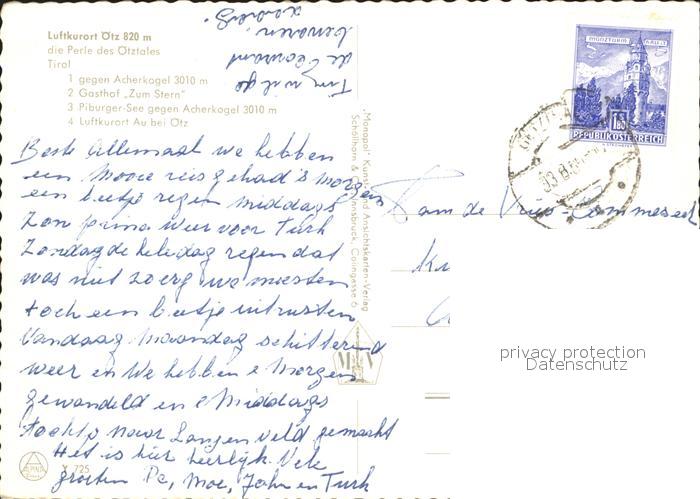 Luftkurort Ötz 820 m
die Perle des Ötztales
Tirol
1 gegen Acherkogel 3010 m
2 Gasthof „Zum Stern"
3 Piburger-See gegen Acherkogel 3010 m
4 Luftkurort Au bei Ötz
Beste Allemaal we hebben
een Mooie reis gehad 's morgens
een beetje regen middags
Zon prima weer voor Turk
Zondag de hele dag regen dat
was niet zo erg we moesten
toch een beetje uitrusten
Vandaag Maandag schitterend
weer en We hebben e Morgen
gewandeld en e Middags
tocht naar Langenveld gemaakt
Het is hier heerlijk. Vele
groeten Pe, Moe, John en Turk
de
„Monopol" Kunst- und Ansichtskarten-Verlag
Schöllhorn & Innsbruck, Colingasse 6
ALPINE
V 725
MÜNZTURM HALL I.T.
1.80
REPUBLIK ÖSTERREICH
Fam de Vries-
privacy protection
Datenschutz